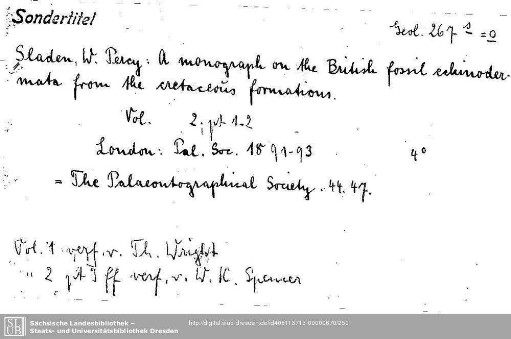 Sondertitel
Geol. 267 s = o
Sladen, W. Percy: A monograph on the British fossil echinoder-
mata from the cretaceous formations.
Vol. 2, pt 1-2
London: Pal. Soc. 1891-93 4°
= The Palaeontographical Society. 44. 47.
Vol. 1 verf. v. Th. Wright
" 2 pt 3 ff verf. v. W. K. Spencer
Sächsische Landesbibliothek –
Staats- und Universitätsbibliothek Dresden